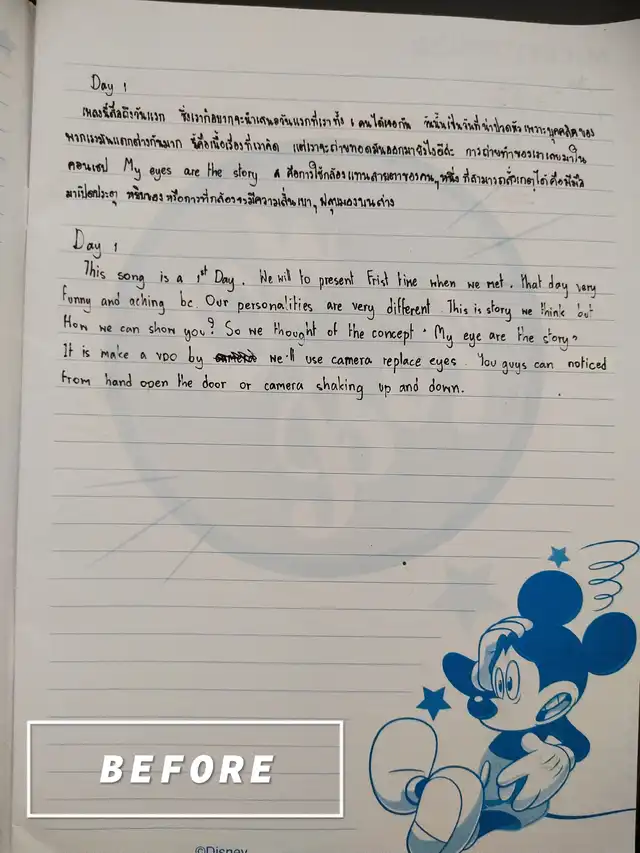 Day 1
เพลงนี้คือถึงวันแรก ซึ่งเราก็อยากจะนำเสนอวันแรกที่เราทั้ง 6 คนได้เจอกัน วันนั้นเป็นวันที่น่าปวดหัว เพราะบุคคลิคของ
พวกเรามันแตกต่างกันมาก นี้คือเนื้อเรื่องที่เราคิด แต่เราจะถ่ายทอดมันออกมายังไงดีล่ะ การถ่ายทำของเราเลยมาใน
คอนเซป My eyes are the story คือการใช้กล้องแทนสายตาของคนๆหนึ่ง ที่สามารถสังเกตุได้ คือมีมือ
มาเปิดประตู หยิบของ หรือการที่กล้องจะมีความสั่นเบาๆ
Day 1
This song is a 1st Day. We will to present Frist time when we met. That day very
funny and aching bc. Our personalities are very different. This is story we think but
How we can show you? So we thought of the concept "My eye are the story"
It is make a VDO by we'll use camera replace eyes. You guys can noticed
from hand open the door or camera shaking up and down.
BEFORE
©Disney